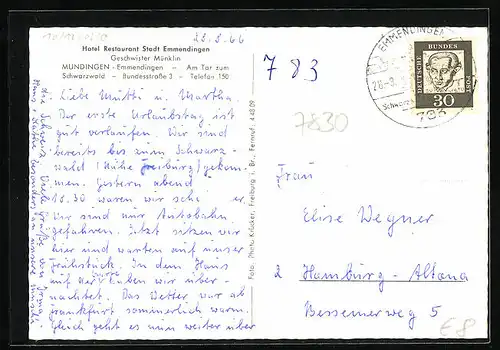 28.8.66
Hotel Restaurant Stadt Emmendingen
Geschwister Münklin
MUNDINGEN - Emmendingen – Am Tor zum
Schwarzwald – Bundesstraße 3 – Telefon 150
Liebe Mutti u. Martha.
Der erste Urlaubstag ist
gut verlaufen. Wir sind
bereits bis zum Schwarz-
wald (Nähe Freiburg) gekom-
men. Gestern abend
18.30 waren wir
Wir sind nur Autobahn
gefahren. Jetzt sitzen wir
hier und warten auf unser
Frühstück. In dem Haus
haben wir über-
nachtet. Das Wetter war ab
Frankfurt sommerlich warm.
Gleich geht es nun weiter über
die Schweiz. Viele Grüße von Irma,
Hans
Foto: Phil. Krücker, Freiburg i. Br., Fernruf: 44809
783
7830
EMMENDINGEN
28.-8.
783
DEUTSCHE BUNDESPOST
30
Frau
Elise Wegner
2 Hamburg-Altona
Bessemerweg 5
E8